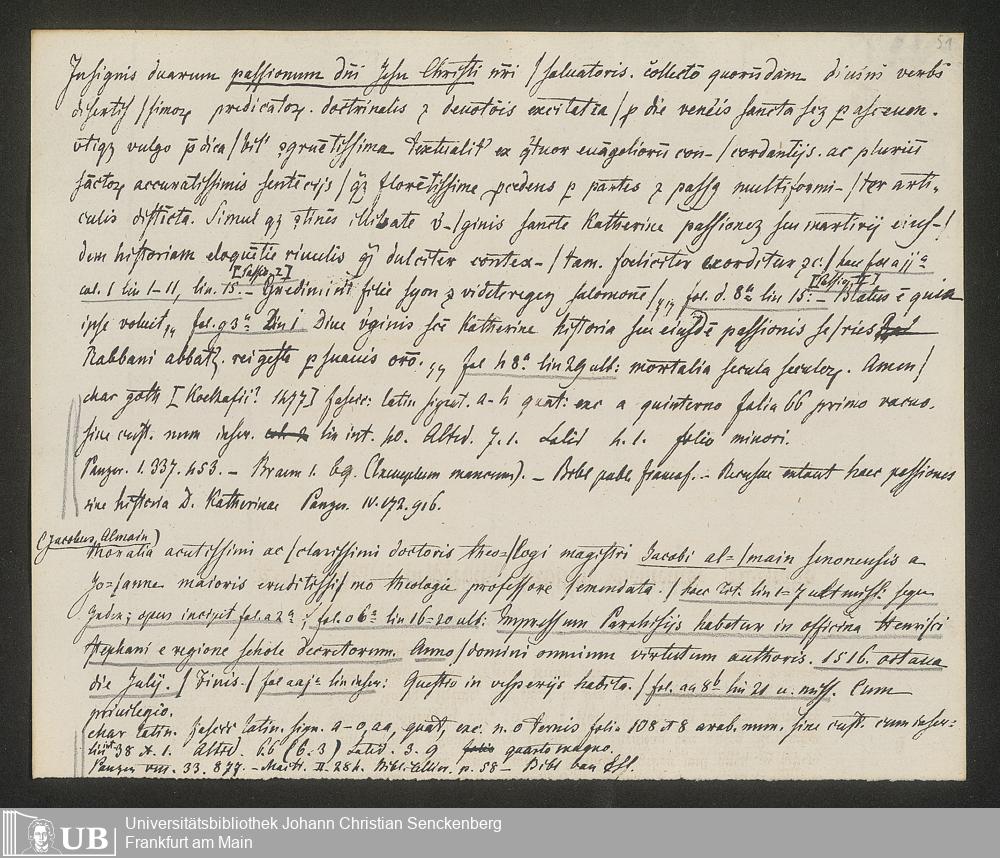 51
Insignis duarum passionum dni Jesu Christi nri / saluatoris. collecto quorūdam diuini verbi
disertis / simoꝝ predicatoꝝ. doctrinalis ⁊ deuotōis excitatīa / p die venēis sancta seꝫ
vtiqꝫ vulgo p̄dica / bil' ꝯgruētissima textualit' ex qtuor euāgelioru con- / cordantijs. ac plurieū
sāctoꝝ accuratissimis sentēcijs / qꝫ florētissime pcedens p partes ⁊ passꝫ multiformi- / ter arti-
culis distīcta. Simul qꝫ ꝯtinēs illibate v- / ginis sancte Katherine passionez seu martirij eius- /
dem historiam eloquētie riuulis qꝫ dulciter contex- / tam. foeliciter exorditur ꝛc: / haec fol a jj a
col. 1 lin 1-11, lin. 15. - Egrediminī filie syon ⁊ videte regeꝫ salomonē / ,, fol. d. 8a lin 15: - Blatus ē quia
[Passio 2]
ipse voluit ,, fol. g 3a Lin 1 Diue v'ginis scē Katherine historia seu eiusdē passionis se / ries
Rabbani abbatꝫ rei geste p suauis orō. ,, fol h 8a lin 29 ult: mortalia secula seculoꝝ. Amen /
char goth [Koelhofii? 1477] foserc: latin signat. a-h quat: exc a quinterno folia 66 primo vacuo.
sine cust. num inscr. lin int. 40. Altid. 7.1. Latid 4.1. folio minori.
Panzer. 1. 337. 453. - Braun 1. (Exemplum mancum). - Bibl publ francof. - Recusae extant haec passiones
sine historia D. Katherinae Panzer IV. 172. 916.
(Jacobus, Almain)
Moralia acutissimi ac / clarissimi doctoris theo- / logi magistri Jacobi al- / main senonensis a
Jo- / anne maioris eruditissi / mo theologie professore / emendata. / haec Tit. lin 1-7
Index; opus incipit fol. a 2a; fol. o 6a lin 16-20 ult: Impressum Parrhisijs habetur in officina Henrici
Stephani e regione schole Decretorum. Anno / domini omnium virtutum authoris. 1516. octaua
die Julij. / Finis. / fol aa ja lin inser: Questio in vesperijs habita. / fol. aa 8b lin 21 u. Cum
priuilegio.
char latin. foserc latin. sign. a-o, aa, quat, exc. n.o ternis folia 108 et 8 arab. num. sine cust. cum inser:
lin int 38 et. 1. Altid. 6.6 (6.3) Latid. 3.9 quarto magno.
Panzer VIII. 33. 877. - Maitt. II. 284. p. 58 - Bibl
UB Universitätsbibliothek Johann Christian Senckenberg
Frankfurt am Main